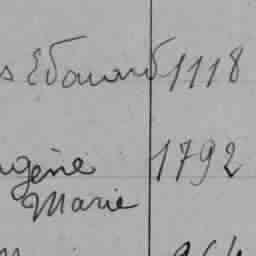 s Edouard 1118
ugène 1792
Marie